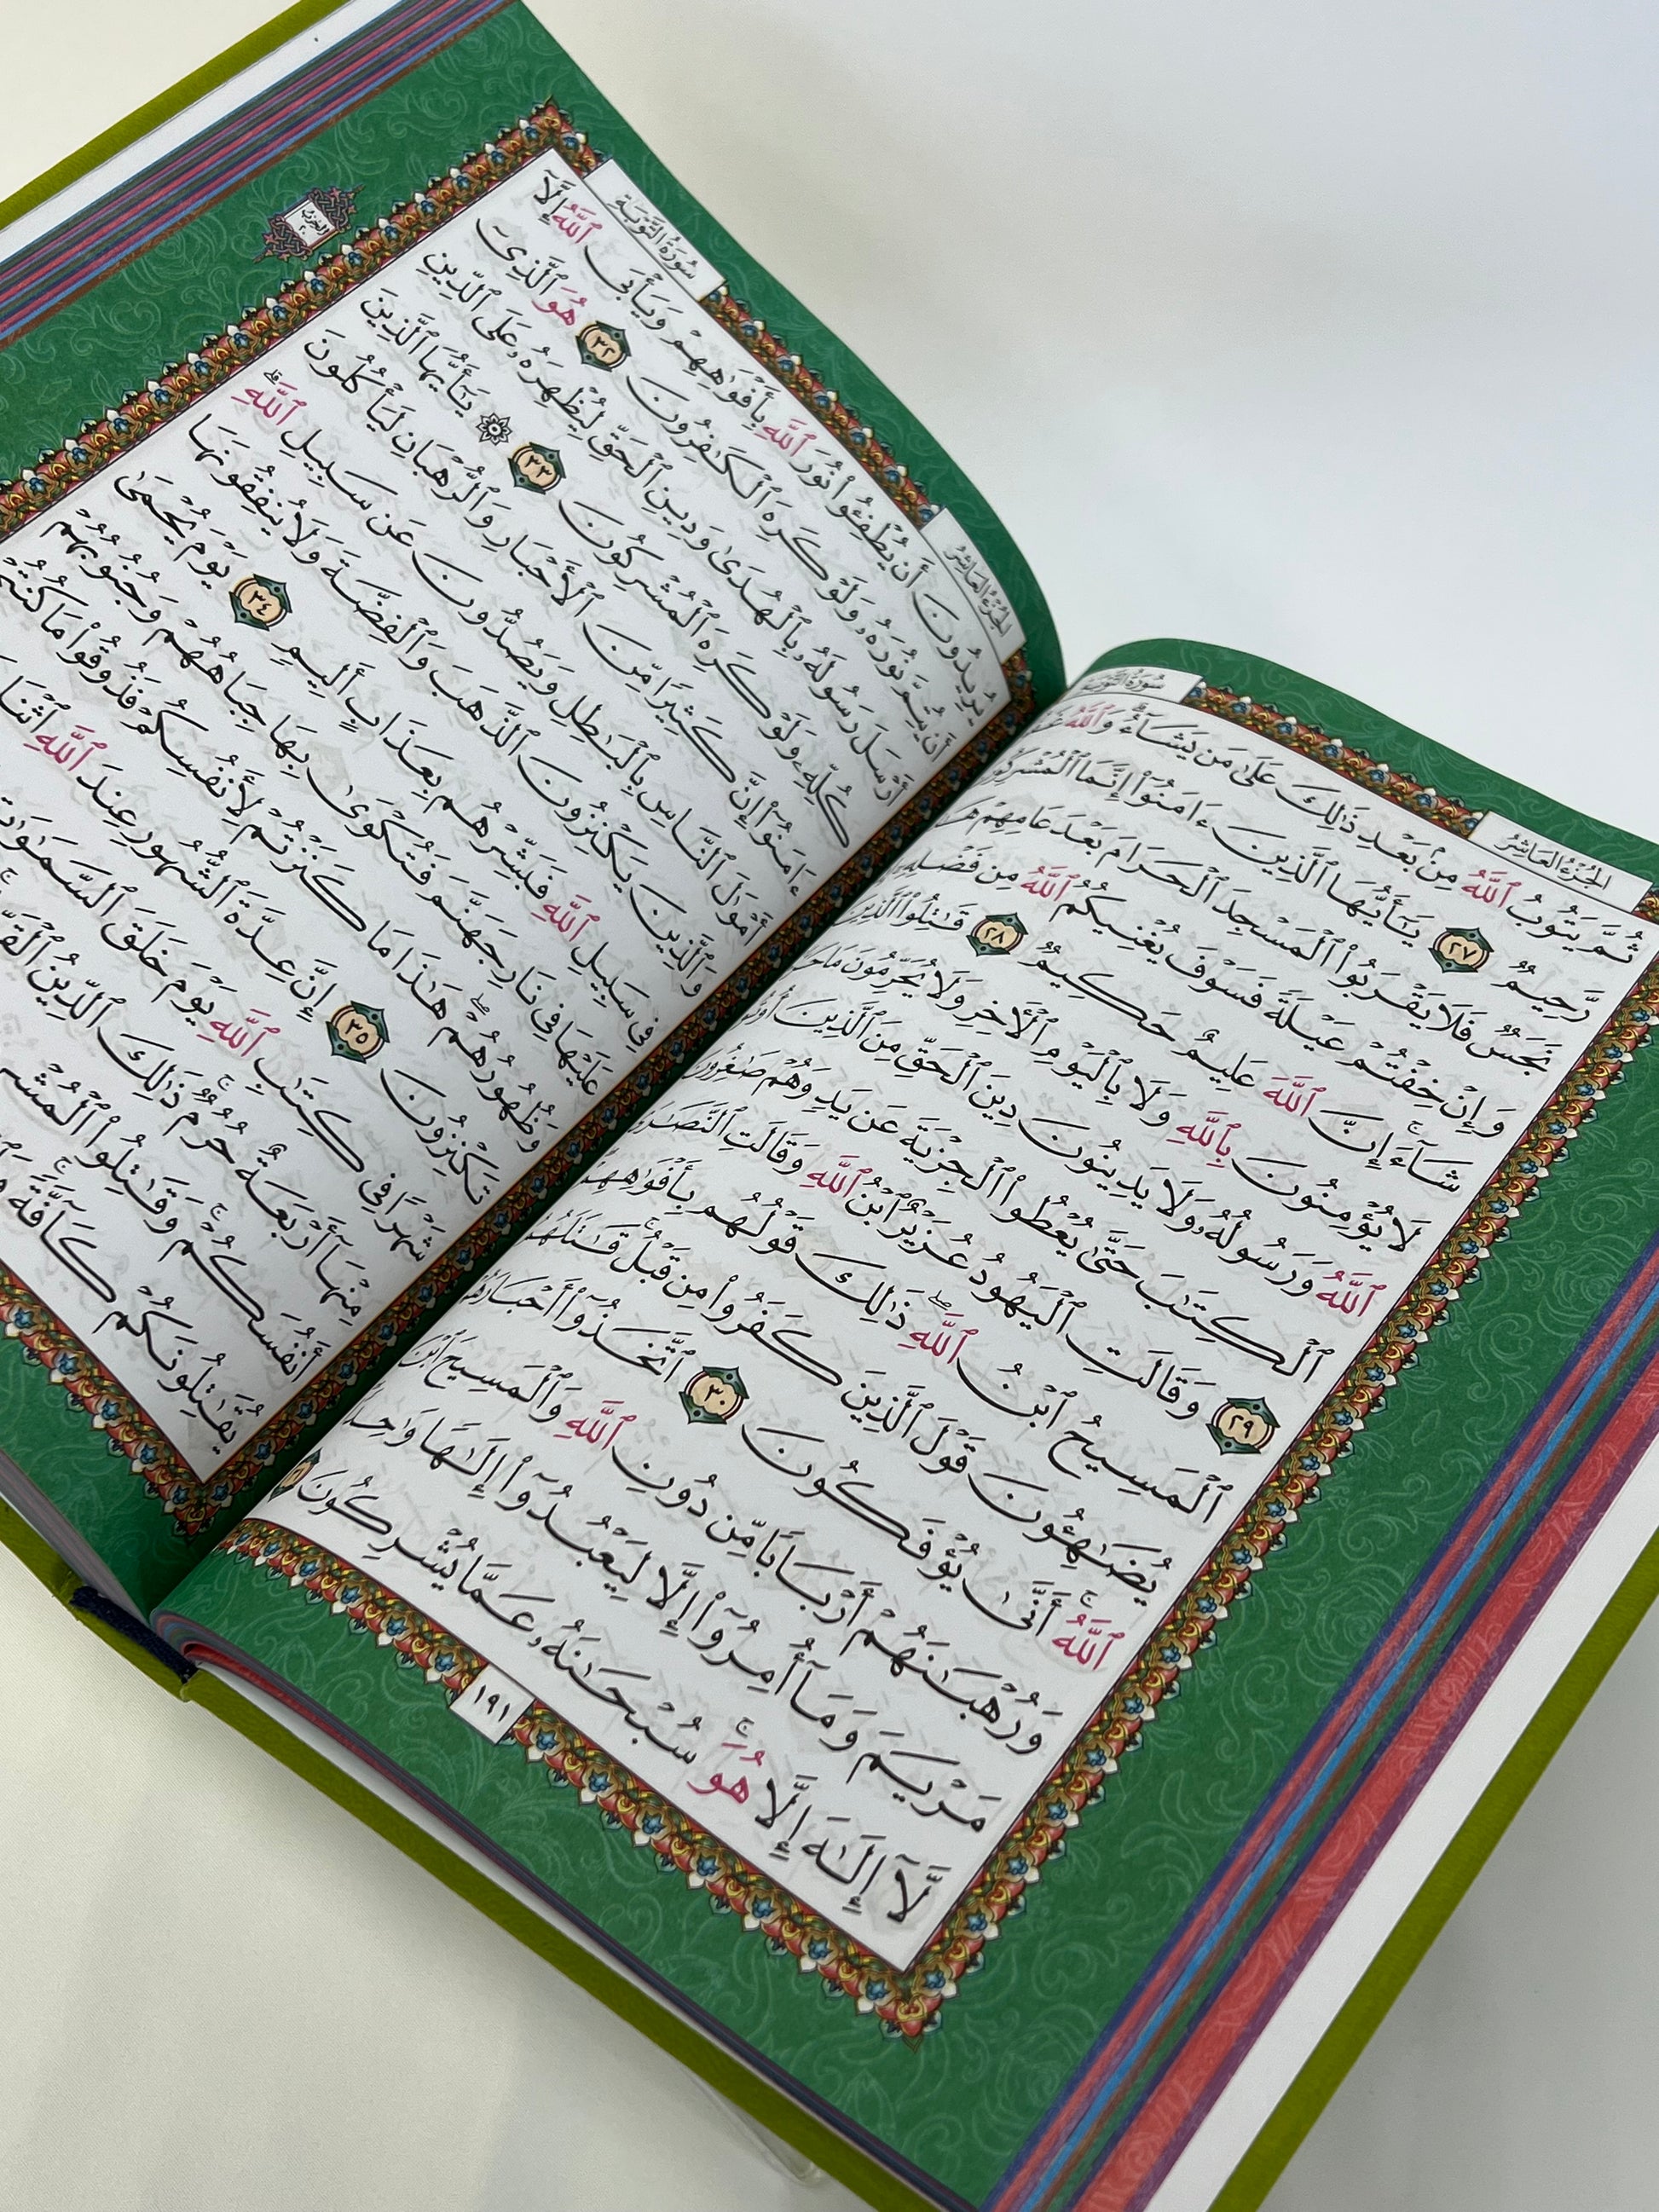 سُورَةُ التَّوْبَةِ
الجُزْءُ العَاشِرُ
ثُمَّ يَتُوبُ ٱللَّهُ مِنۢ بَعْدِ ذَٰلِكَ عَلَىٰ مَن يَشَآءُ ۗ وَٱللَّهُ
رَّحِيمٌ ٢٧ يَـٰٓأَيُّهَا ٱلَّذِينَ ءَامَنُوٓا۟ إِنَّمَا ٱلْمُشْرِكُونَ
نَجَسٌ فَلَا يَقْرَبُوا۟ ٱلْمَسْجِدَ ٱلْحَرَامَ بَعْدَ عَامِهِمْ
وَإِنْ خِفْتُمْ عَيْلَةً فَسَوْفَ يُغْنِيكُمُ ٱللَّهُ مِن فَضْلِهِۦٓ
شَآءَ ۚ إِنَّ ٱللَّهَ عَلِيمٌ حَكِيمٌ ٢٨ قَـٰتِلُوا۟ ٱلَّذِينَ
لَا يُؤْمِنُونَ بِٱللَّهِ وَلَا بِٱلْيَوْمِ ٱلْـَٔاخِرِ وَلَا يُحَرِّمُونَ مَا
ٱللَّهُ وَرَسُولُهُۥ وَلَا يَدِينُونَ دِينَ ٱلْحَقِّ مِنَ ٱلَّذِينَ
ٱلْكِتَـٰبَ حَتَّىٰ يُعْطُوا۟ ٱلْجِزْيَةَ عَن يَدٍ وَهُمْ صَـٰغِرُونَ
٢٩ وَقَالَتِ ٱلْيَهُودُ عُزَيْرٌ ٱبْنُ ٱللَّهِ وَقَالَتِ ٱلنَّصَـٰرَى
ٱلْمَسِيحُ ٱبْنُ ٱللَّهِ ۖ ذَٰلِكَ قَوْلُهُم بِأَفْوَٰهِهِمْ ۖ
يُضَـٰهِـُٔونَ قَوْلَ ٱلَّذِينَ كَفَرُوا۟ مِن قَبْلُ ۚ قَـٰتَلَهُمُ
ٱللَّهُ ۚ أَنَّىٰ يُؤْفَكُونَ ٣٠ ٱتَّخَذُوٓا۟ أَحْبَارَهُمْ
وَرُهْبَـٰنَهُمْ أَرْبَابًا مِّن دُونِ ٱللَّهِ وَٱلْمَسِيحَ ٱبْنَ
مَرْيَمَ وَمَآ أُمِرُوٓا۟ إِلَّا لِيَعْبُدُوٓا۟ إِلَـٰهًا وَٰحِدًا
لَّآ إِلَـٰهَ إِلَّا هُوَ ۚ سُبْحَـٰنَهُۥ عَمَّا يُشْرِكُونَ
١٩١
سُورَةُ التَّوْبَةِ
الجُزْءُ العَاشِرُ
يُرِيدُونَ أَن يُطْفِـُٔوا۟ نُورَ ٱللَّهِ بِأَفْوَٰهِهِمْ وَيَأْبَى ٱللَّهُ إِلَّآ
أَن يُتِمَّ نُورَهُۥ وَلَوْ كَرِهَ ٱلْكَـٰفِرُونَ ٣٢ هُوَ ٱلَّذِىٓ
أَرْسَلَ رَسُولَهُۥ بِٱلْهُدَىٰ وَدِينِ ٱلْحَقِّ لِيُظْهِرَهُۥ عَلَى ٱلدِّينِ
كُلِّهِۦ وَلَوْ كَرِهَ ٱلْمُشْرِكُونَ ٣٣ ۞ يَـٰٓأَيُّهَا ٱلَّذِينَ
ءَامَنُوٓا۟ إِنَّ كَثِيرًا مِّنَ ٱلْأَحْبَارِ وَٱلرُّهْبَانِ لَيَأْكُلُونَ
أَمْوَٰلَ ٱلنَّاسِ بِٱلْبَـٰطِلِ وَيَصُدُّونَ عَن سَبِيلِ ٱللَّهِ ۗ
وَٱلَّذِينَ يَكْنِزُونَ ٱلذَّهَبَ وَٱلْفِضَّةَ وَلَا يُنفِقُونَهَا
فِى سَبِيلِ ٱللَّهِ فَبَشِّرْهُم بِعَذَابٍ أَلِيمٍ ٣٤ يَوْمَ يُحْمَىٰ
عَلَيْهَا فِى نَارِ جَهَنَّمَ فَتُكْوَىٰ بِهَا جِبَاهُهُمْ وَجُنُوبُهُمْ
وَظُهُورُهُمْ ۖ هَـٰذَا مَا كَنَزْتُمْ لِأَنفُسِكُمْ فَذُوقُوا۟ مَا كُنتُمْ
تَكْنِزُونَ ٣٥ إِنَّ عِدَّةَ ٱلشُّهُورِ عِندَ ٱللَّهِ ٱثْنَا
شَهْرًا فِى كِتَـٰبِ ٱللَّهِ يَوْمَ خَلَقَ ٱلسَّمَـٰوَٰتِ
مِنْهَآ أَرْبَعَةٌ حُرُمٌ ۚ ذَٰلِكَ ٱلدِّينُ
أَنفُسَكُمْ ۚ وَقَـٰتِلُوا۟
يُقَـٰتِلُونَكُمْ كَآفَّةً ۚ